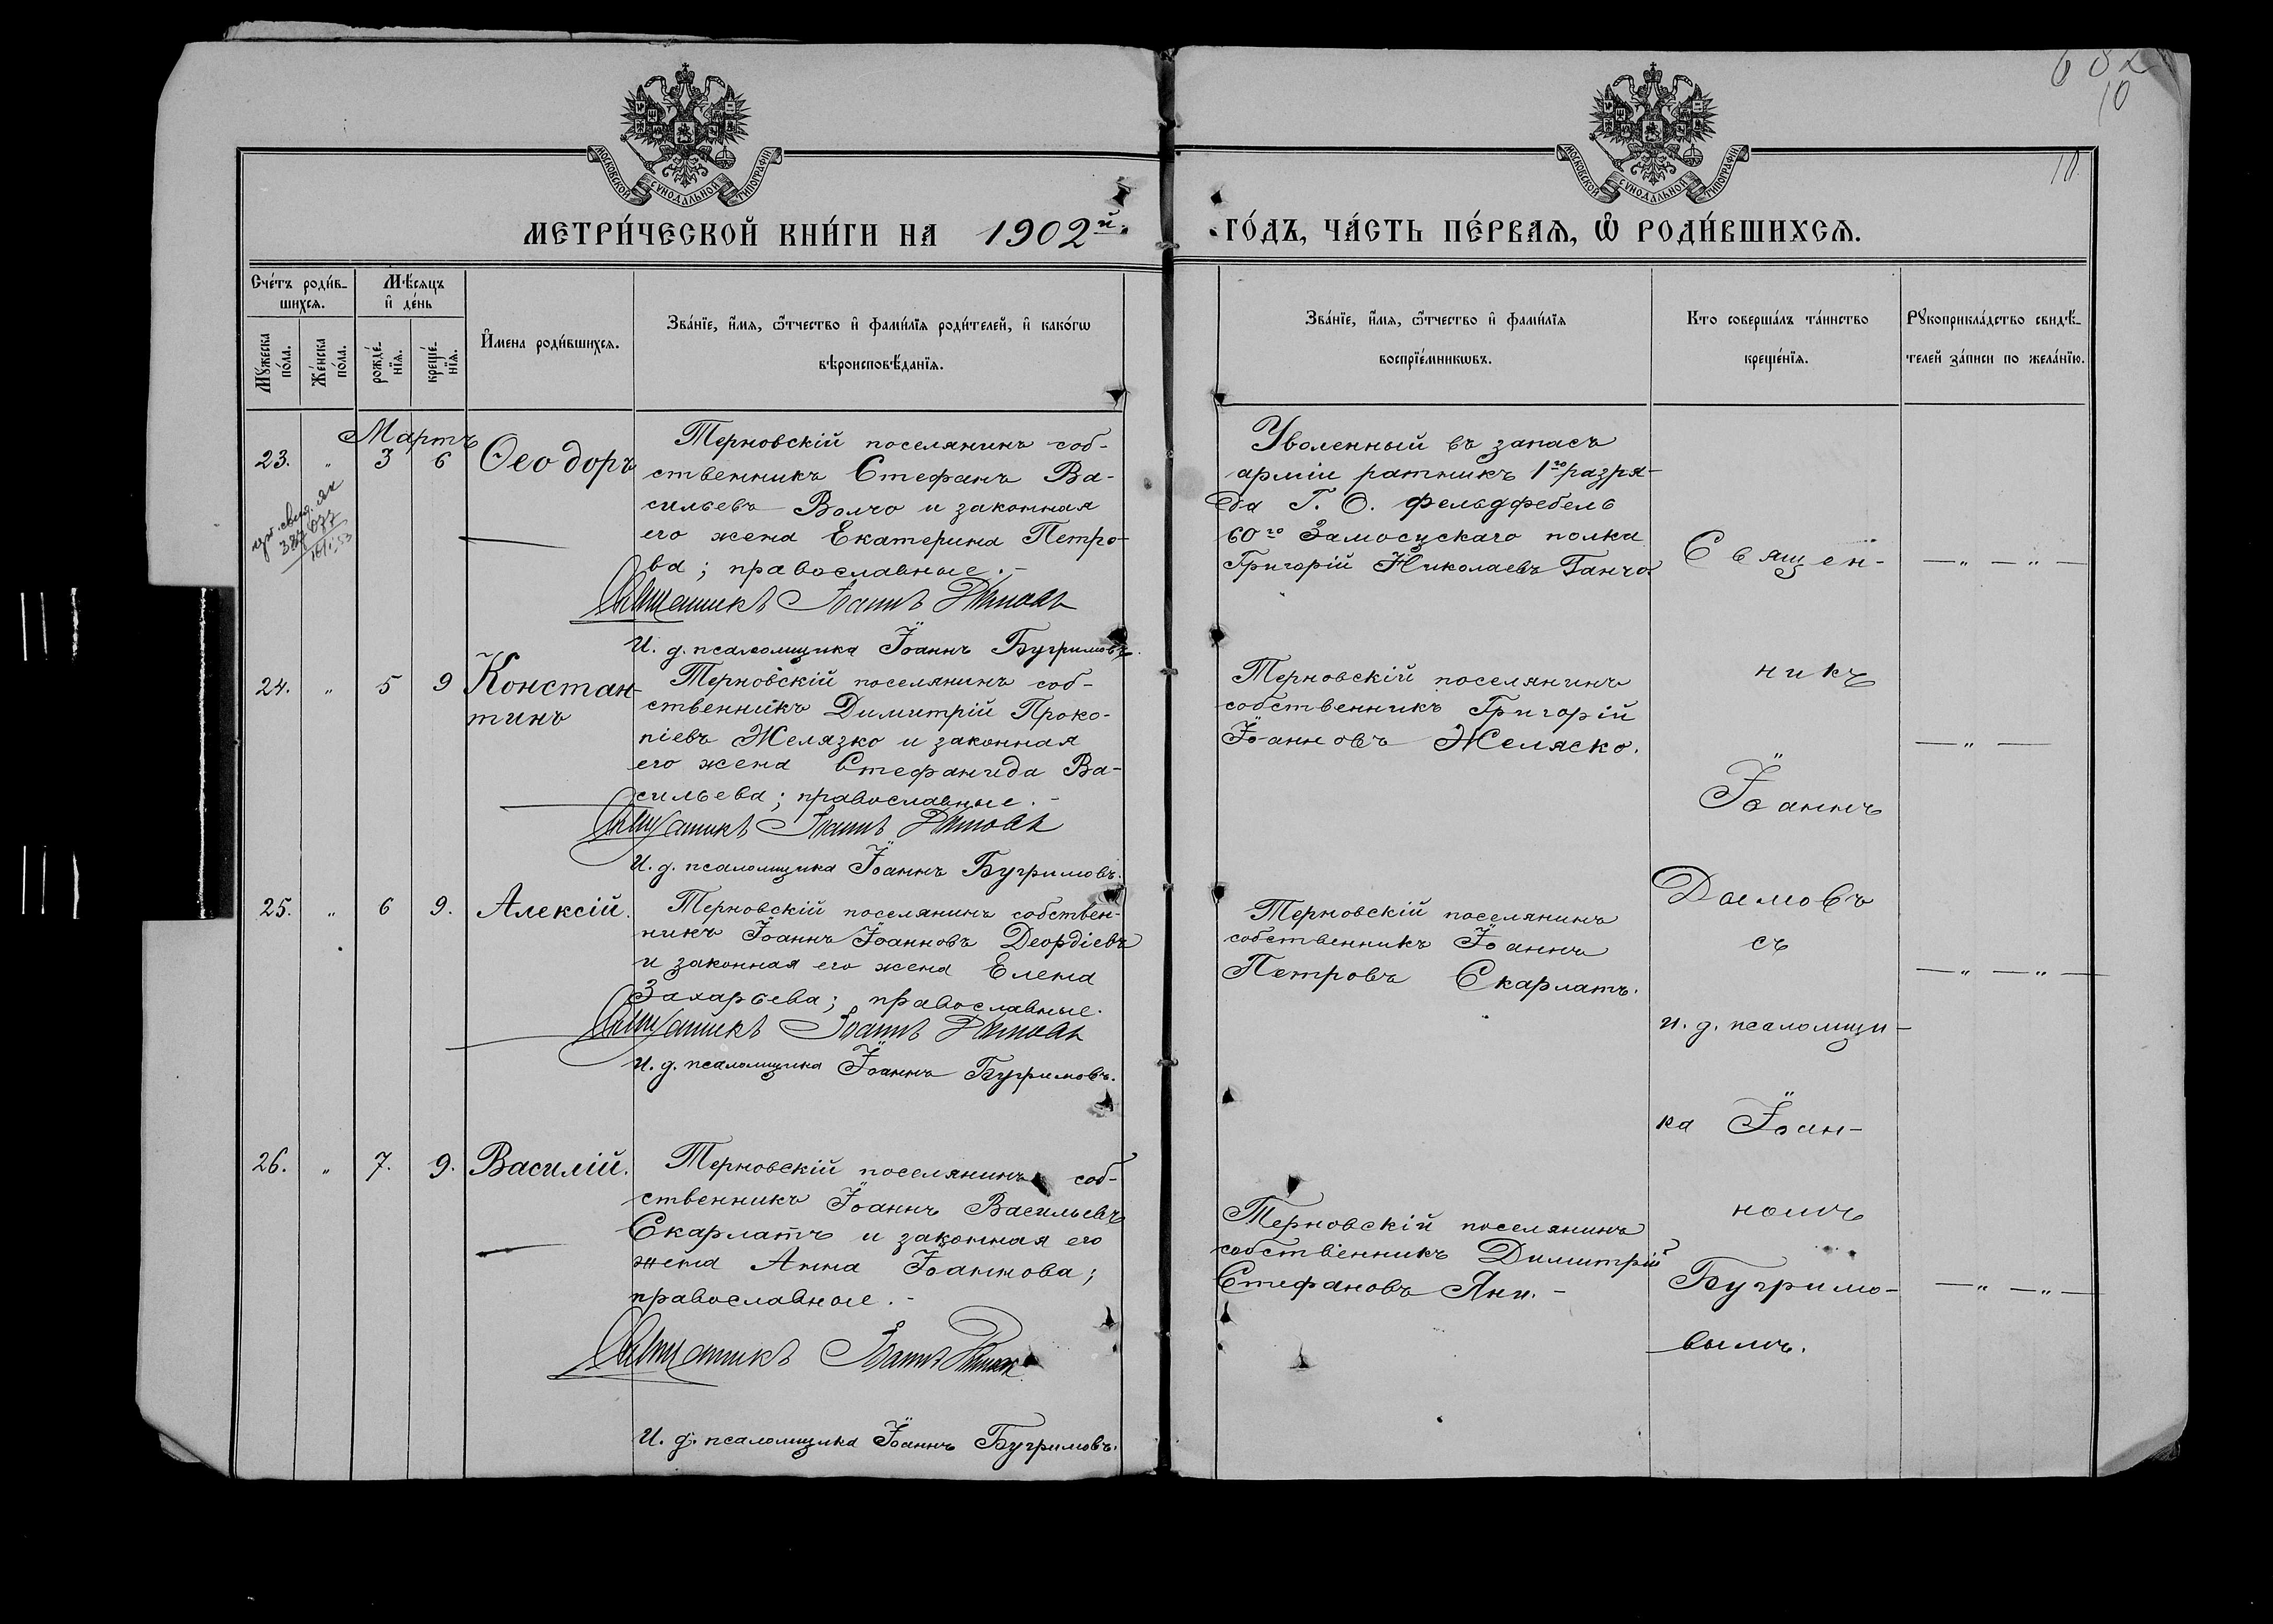 682
10
10.
МОСКОВСКОЙ СѴНОДАЛЬНОЙ ТИПОГРАФІИ
МОСКОВСКОЙ СѴНОДАЛЬНОЙ ТИПОГРАФІИ
МЕТРИ́ЧЕСКОЙ КНИ́ГИ НА 1902й.
ГО́ДЪ, ЧА́СТЬ ПЕ́РВАѦ, Ѡ҆ РОДИ́ВШИХСѦ.
Сче́тъ роди́в-
шихсѧ.
Мѣ́сѧцъ
и҆ де́нь
Мꙋ́жеска
по́ла.
Же́нска
по́ла.
рожде́-
нїѧ.
креще́-
нїѧ.
И҆мена роди́вшихсѧ.
Зва́нїе, и҆́мѧ, ѻ҆́тчество и҆ фами́лїѧ роди́телей, и҆ како́гѡ
вѣроисповѣ́данїѧ.
Зва́нїе, и҆́мѧ, ѻ҆́тчество и҆ фами́лїѧ
воспрїе́мникѡвъ.
Кто соверша́лъ та́инство
креще́нїѧ.
Рꙋкоприкла́дство свидѣ́-
телей за́писи по жела́нїю.
Мартъ
23. „ 3 6 Ѳеодоръ
Терновскій поселянинъ соб-
ственникъ Стефанъ Ва-
сильевъ Волчо и законная
его жена Екатерина Петро-
ва; православные.-
Священникъ Іоаннъ Дамовъ
И. д. псаломщика Іоаннъ Бугримовъ.
Уволенный въ запасъ
арміи ратникъ 1го разря-
да Г. О. фельдфебель
60го Замосцскаго полка
Григорій Николаевъ Ганчо
— „ — „ —
24. „ 5 9 Констан-
тинъ
Терновскій поселянинъ соб-
ственникъ Димитрій Проко-
піевъ Желязко и законная
его жена Стефанида Ва-
сильева; православные.-
Священникъ Іоаннъ Дамовъ
И. д. псаломщика Іоаннъ Бугримовъ.
Терновскій поселянинъ
собственникъ Григорій
Іоанновъ Желяско.
— „ —
25. „ 6 9. Алексій.
Терновскій поселянинъ собствен-
никъ Іоаннъ Іоанновъ Деордіевъ
и законная его жена Елена
Захарьева; православные.
Священникъ Іоаннъ Дамовъ
И. д. псаломщика Іоаннъ Бугримовъ.
Терновскій поселянинъ
собственникъ Іоаннъ
Петровъ Скарлатъ.
— „ — „ —
26. „ 7. 9. Василій.
Терновскій поселянинъ соб-
ственникъ Іоаннъ Васильевъ
Скарлатъ и законная его
жена Анна Іоаннова;
православные.-
Священникъ Іоаннъ Дамовъ
И. д. псаломщика Іоаннъ Бугримовъ.
Терновскій поселянинъ
собственникъ Димитрій
Стефановъ Яни.-
— „ — „ —
Священ-
никъ
Іоаннъ
Дамовъ
съ
и. д. псаломщи-
ка Іоан-
номъ
Бугримо-
вымъ.